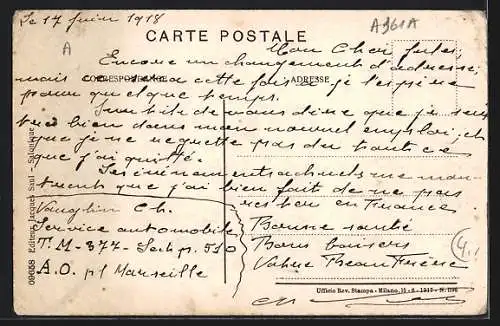 Le 17 Juin 1918
A961A
A
CARTE POSTALE
CORRESPONDANCE
ADRESSE
Mon Cher Jules,
Encore un changement d'adresse,
mais ce sera cette fois-ci je l'espère
pour quelque temps.
Inutile de vous dire que je suis
très bien dans mon nouvel emploi, et
que je ne regrette pas du tout ce
que j'ai quitté.
Les événements actuels me mon-
trent que j'ai bien fait de ne pas
rester en France
Bonne santé
Bons baisers
Votre Beau Frère
Ch.
Service automobile
T.M - 377 - Sect p. 510
A.O. pl Marseille
4.-
09658 Editeur Jacques Saul - Salonique
Ufficio Rev. Stampa - Milano, 11-6-1917 - N. 1196